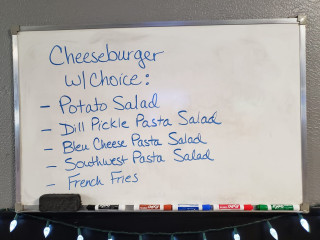 Cheeseburger
w/Choice:
- Potato Salad
- Dill Pickle Pasta Salad
- Bleu Cheese Pasta Salad
- Southwest Pasta Salad
- French Fries